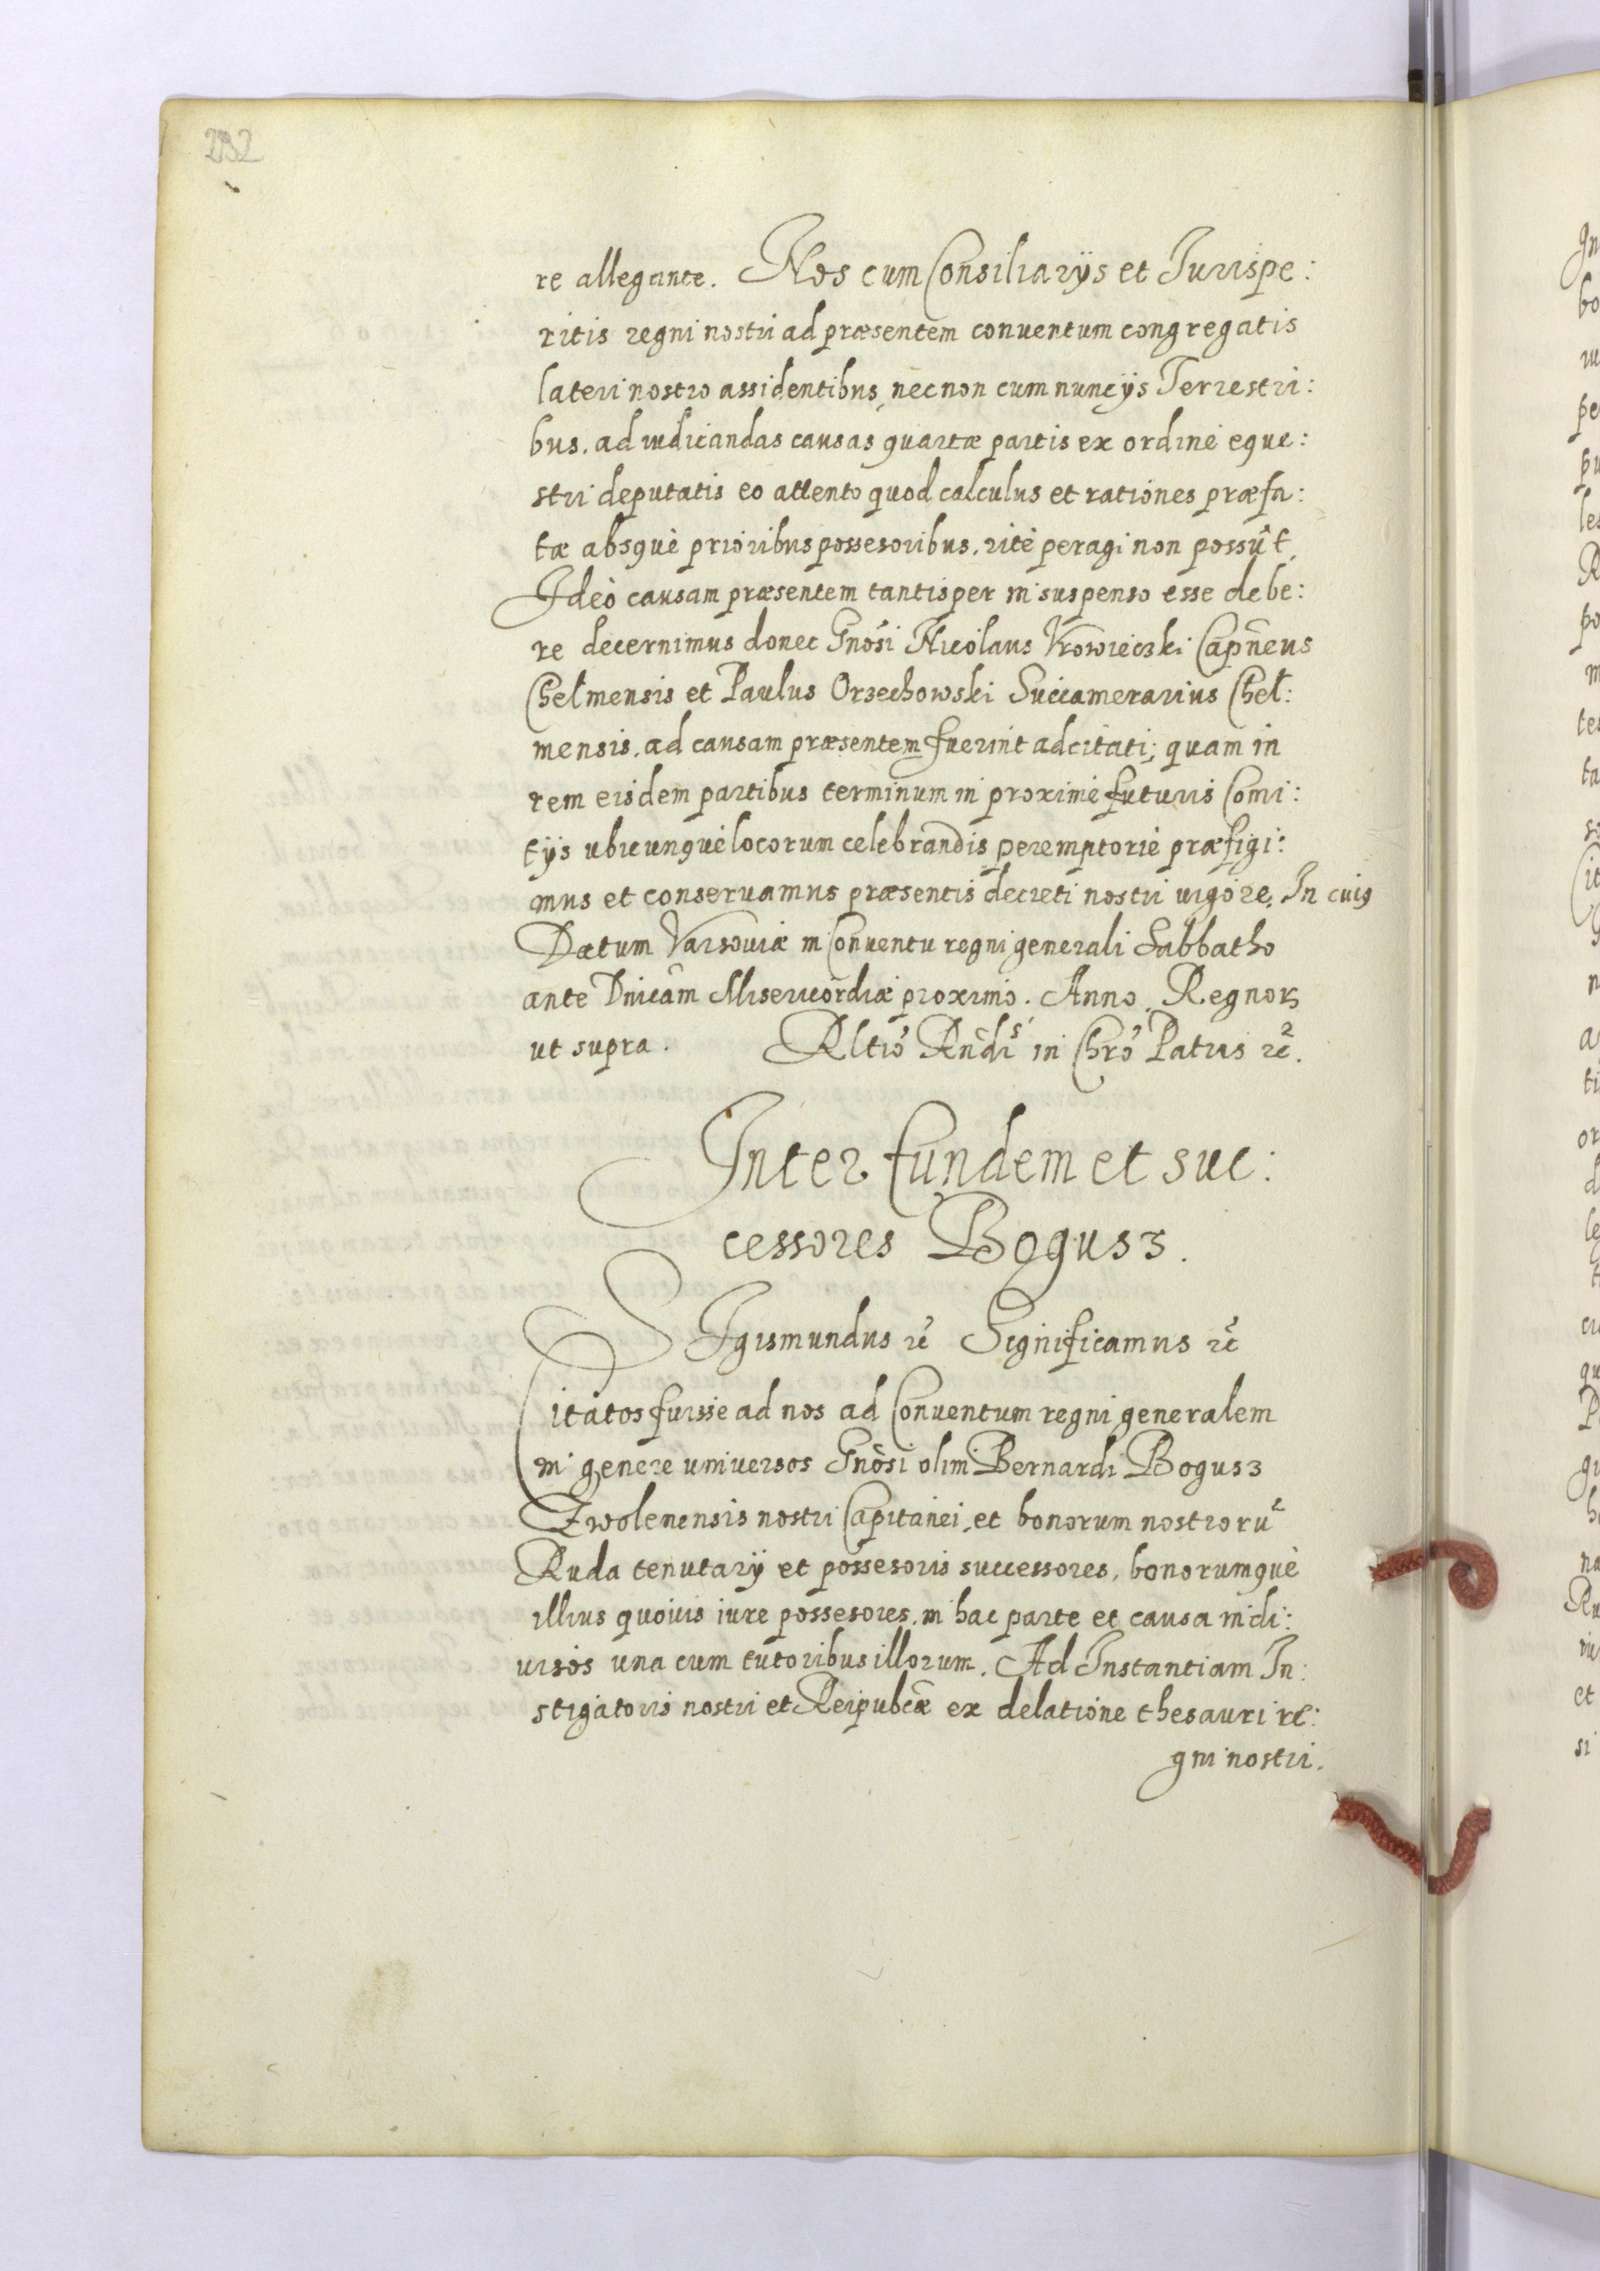 re allegante. Nos cum Consiliarijs et Jurispe:
ritis regni nostri ad præsentem conuentum congregatis
lateri nostro assidentibus, necnon cum nuncijs Terrestri:
bus. ad iudicandas causas quartæ partis ex ordine eque:
stri deputatis eo attento quod calculus et rationes præfa:
tæ absquè prioribus possesoribus. ritè peragi non possũt,
Ideò causam præsentem tantisper in suspenso esse debe:
re decernimus donec Gnosi Nicolaus Vrowieczki Capneus
Chełmensis et Paulus Orzechowski Succamerarius Cheł:
mensis. ad causam præsentem fuerint adcitati; quam in
rem eisdem partibus terminum in proximè futuris Comi:
tijs ubicunquè locorum celebrandis peremptoriè præfigi:
mus et conseruamus præsentis decreti nostri uigore. In cuiꝯ
Datum Varsouiæ in Conuentu regni generali Sabbatho
ante Dnicam Misericordiæ proximo. Anno. Regnorꝝ
ut supra. Rltio Rndi in Chro Patris ꝛc̃.
Inter Eundem et suc:
cessores Bogusz.
SIgismundus ꝛc̃ Significamus ꝛc̃
Citatos fuisse ad nos ad Conuentum regni generalem
in genere uniuersos Gnosi olim Bernardi Bogusz
Zwolenensis nostri Capitanei, et bonorum nostrorũ
Ruda tenutarij et possesoris successores, bonorumquè
illius quouis iure possesores. in hac parte et causa indi:
uisos una cum tutoribus illorum. Ad Instantiam In:
stigatoris nostri et Reipubcæ ex delatione thesauri re:
gni nostri.